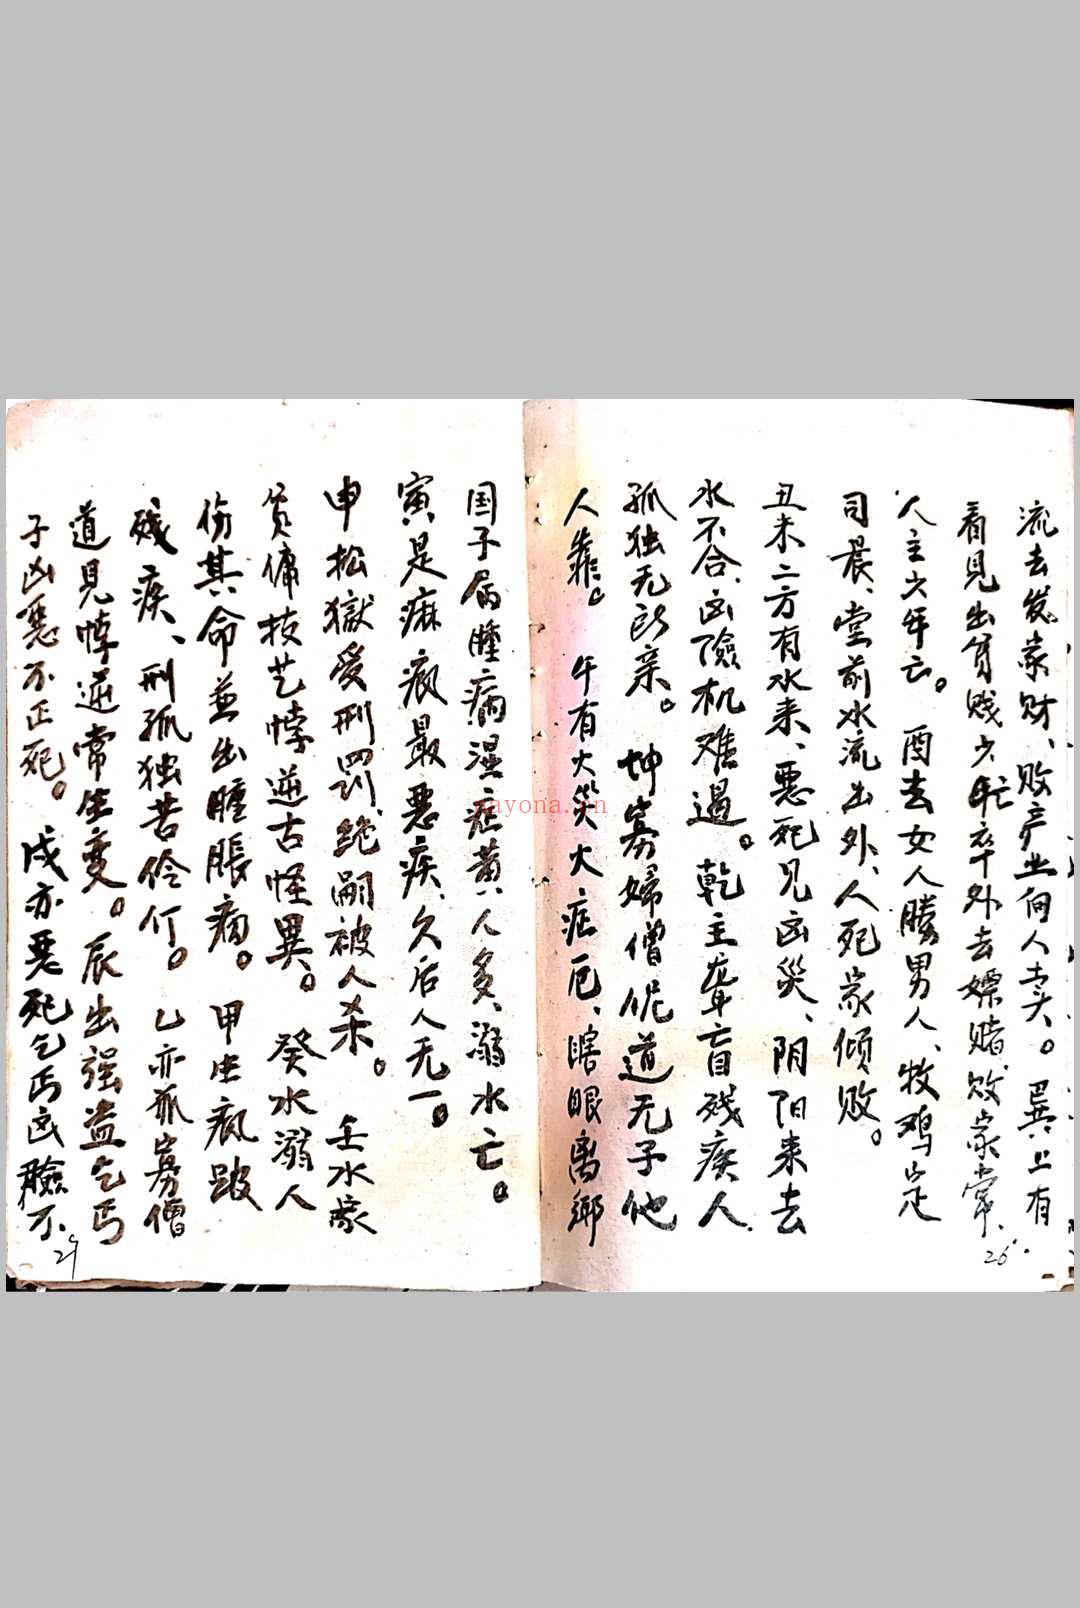 流去发家财、败产业何人卖。巽上有
看见出贫贱少年卒外去嫖赌、败家常、
人主少年亡。酉去女人胜男人、牧鸡定
司晨、堂前水流出外、人死家倾败。
丑未二方有水来、恶死见凶災、阴阳来去
水不合、凶險机难过。乾主聋盲残疾人
孤独无所亲。坤寡婦僧伲道无子他
人靠。午有火災大症厄、瞎眼离鄉
26
国子肩腫病湿症黄人多、溺水亡。
寅是麻疯最恶疾、久后人无一。
申松獄受刑罚、绝嗣被人杀。壬水家
贫傭技艺悖逆古怪異。癸水溺人
伤其命並出腫脹痨。甲出疯跛
残疾、刑孤独苦伶仃。乙亦孤寡僧
道見悖逆常生变。辰出强盗乞丐
子凶恶不正死。戍亦恶死乞丐凶險不
29
nayona.cn